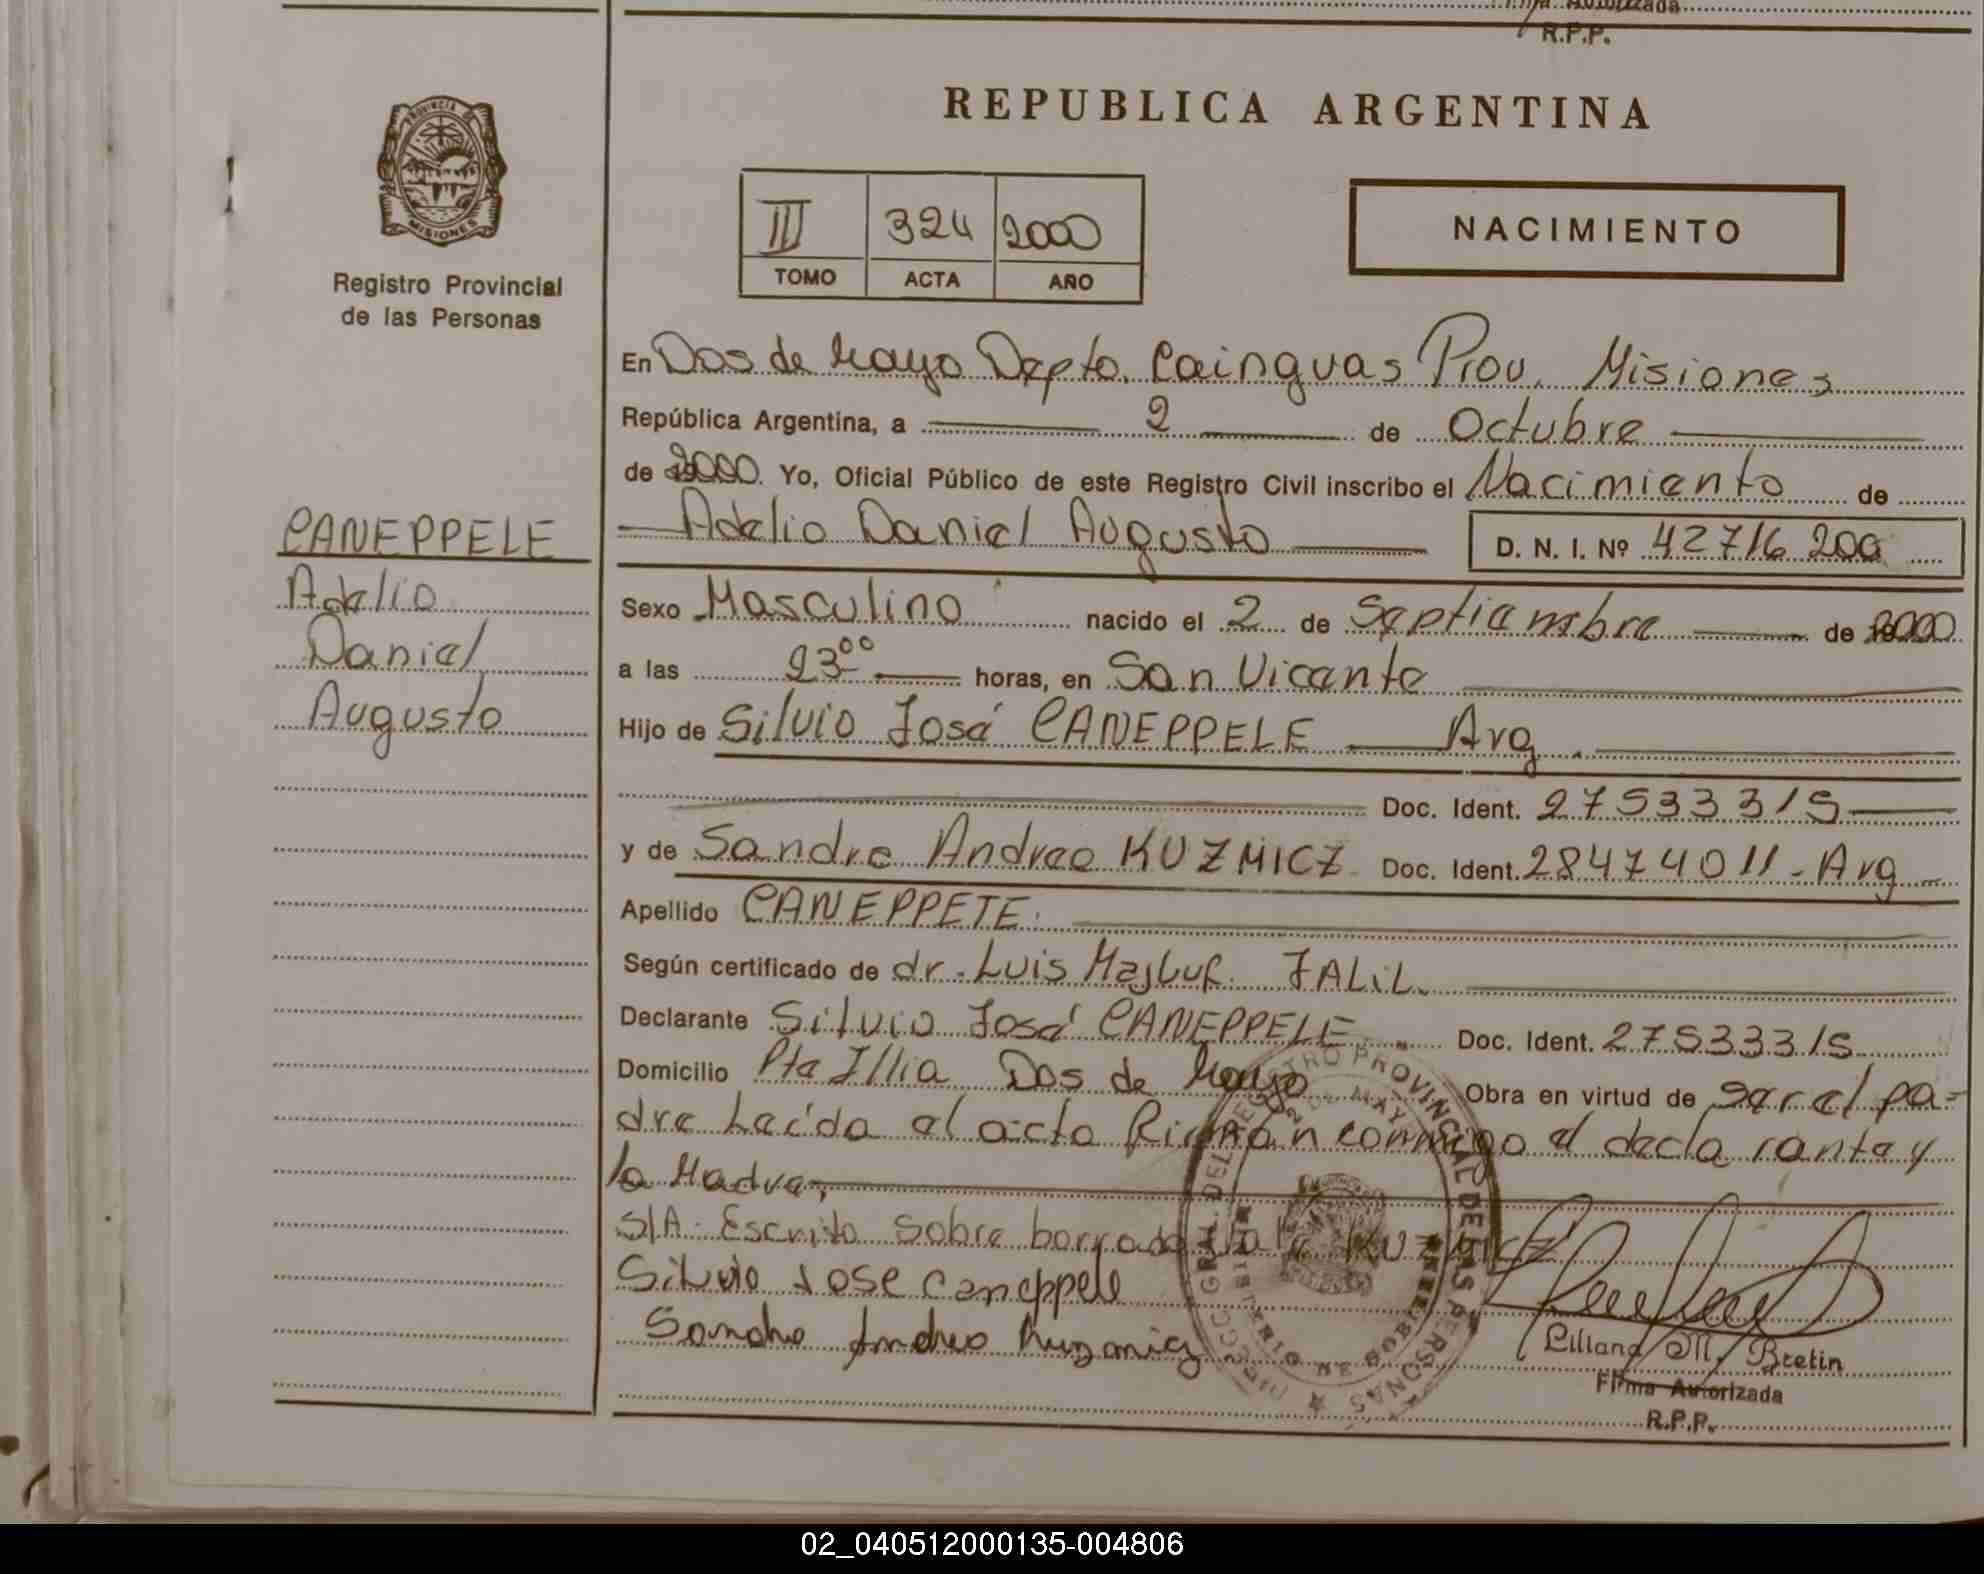 Firma Autorizada
R.P.P.
PROVINCIA
MISIONES
Registro Provincial
de las Personas
REPUBLICA ARGENTINA
III 324 2000
TOMO ACTA AÑO
NACIMIENTO
En Dos de Mayo Depto. Cainguas Prov. Misiones
República Argentina, a 2 de Octubre
de 2000. Yo, Oficial Público de este Registro Civil inscribo el Nacimiento de
Adelio Daniel Augusto D. N. I. Nº 42716 200
CANEPPELE
Adelio
Daniel
Augusto
Sexo Masculino nacido el 2 de Septiembre de 2000
a las 23 00 horas, en San Vicente
Hijo de Silvio José CANEPPELE Arg.
Doc. Ident. 27533315
y de Sandra Andrea KUZMICZ Doc. Ident. 28474011 - Arg
Apellido CANEPPETE.
Según certificado de dr. Luis Majluf. JALIL.
Declarante Silvio José CANEPPELE Doc. Ident. 27533315
Domicilio Pte Illia Dos de Mayo Obra en virtud de ser el pa-
dre Leída el acta Firman conmigo el declarante y
la Madre,
S/A: Escrito sobre borrado Vale KUZMICZ
Silvio Jose Caneppele
Sandra Andrea Kuzmicz
Liliana M. Bretin
Firma Autorizada
R.P.P.
REGISTRO PROVINCIAL DE LAS PERSONAS
02_040512000135-004806